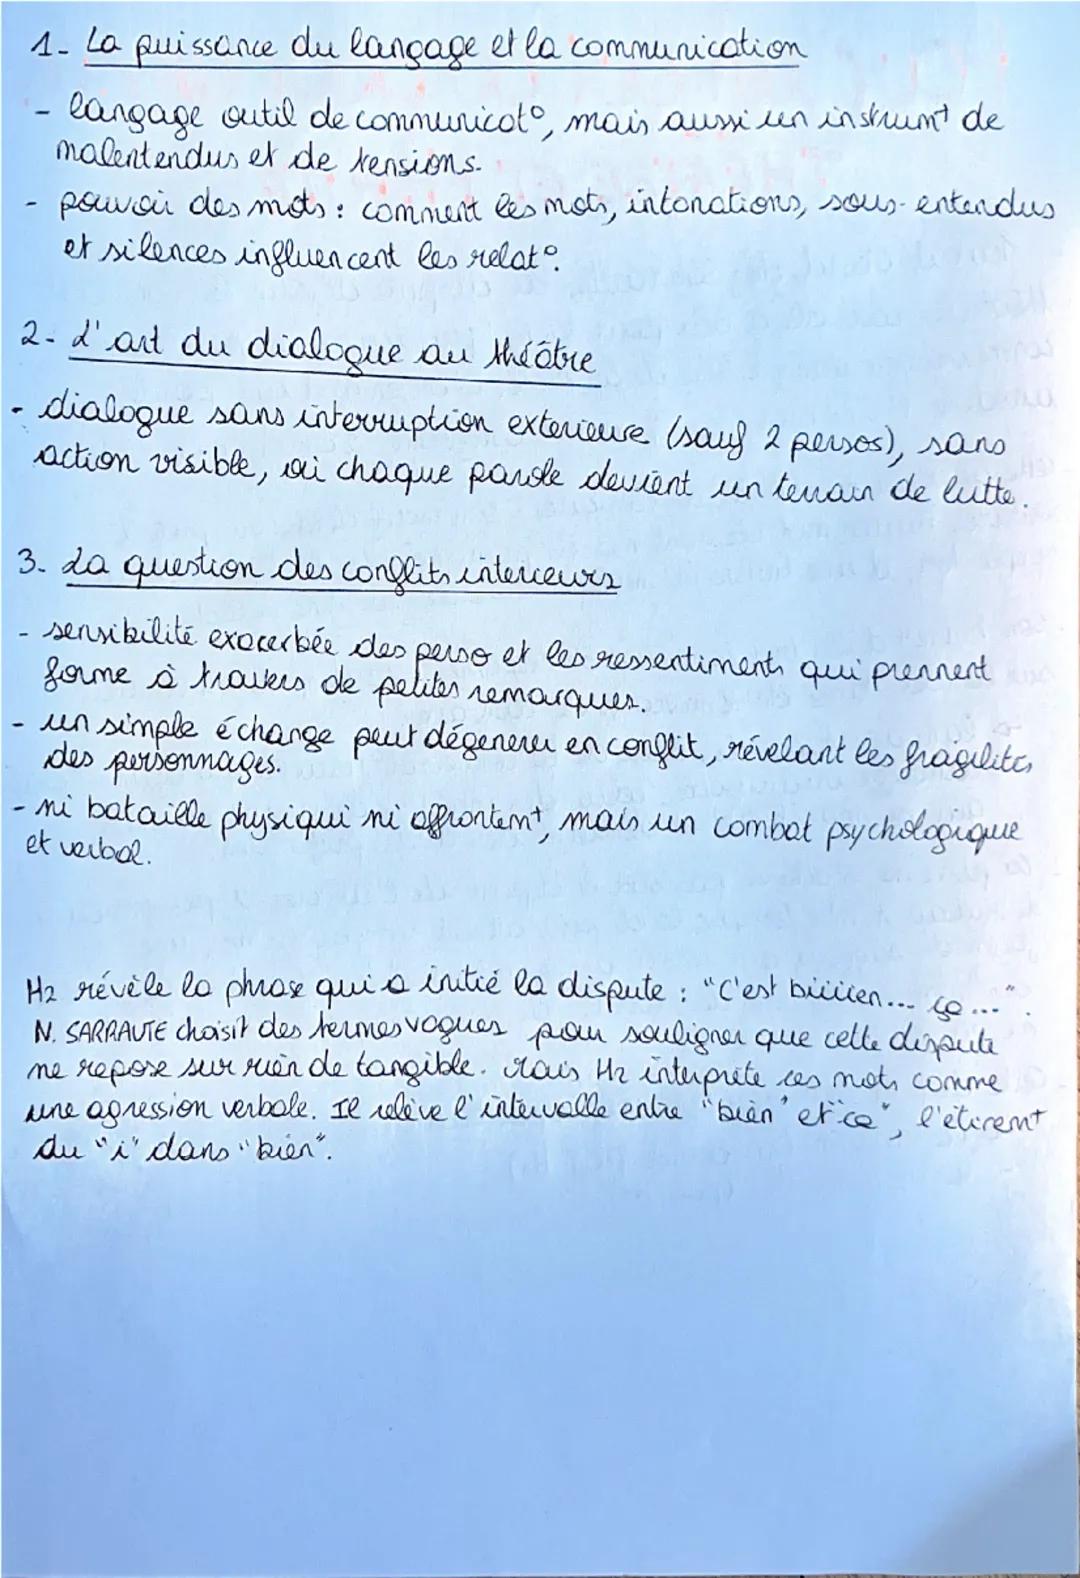 1- La puissance du langage et la communication
- langage outil de communicat°, mais aussi un instrumt de
malentendus et de tensions.
- pouvoir des mots : comment les mots, intonations, sous-entendus
et silences influencent les relat°.
2- L'art du dialogue au théâtre
- dialogue sans interruption exterieure (sauf 2 persos), sans
action visible, où chaque parole devient un terrain de lutte.
3- La question des conflits interieurs
- sensibilité exacerbée des perso et les ressentiments qui prennent
forme à travers de petites remarques.
- un simple échange peut dégenerer en conflit, révelant les fragilités
des personnages.
- ni bataille physiqui ni affrontemt, mais un combat psychologique
et verbal.
H2 révèle la phrase qui a initié la dispute : "C'est biiiien... ça...".
N. SARRAUTE choisit des termes vagues pour souligner que cette dispute
ne repose sur rien de tangible. Mais H2 interprète ces mots comme
une agression verbale. Il relève l'intervalle entre "bien" et "ça", l'étiremt
du "i" dans "bien".